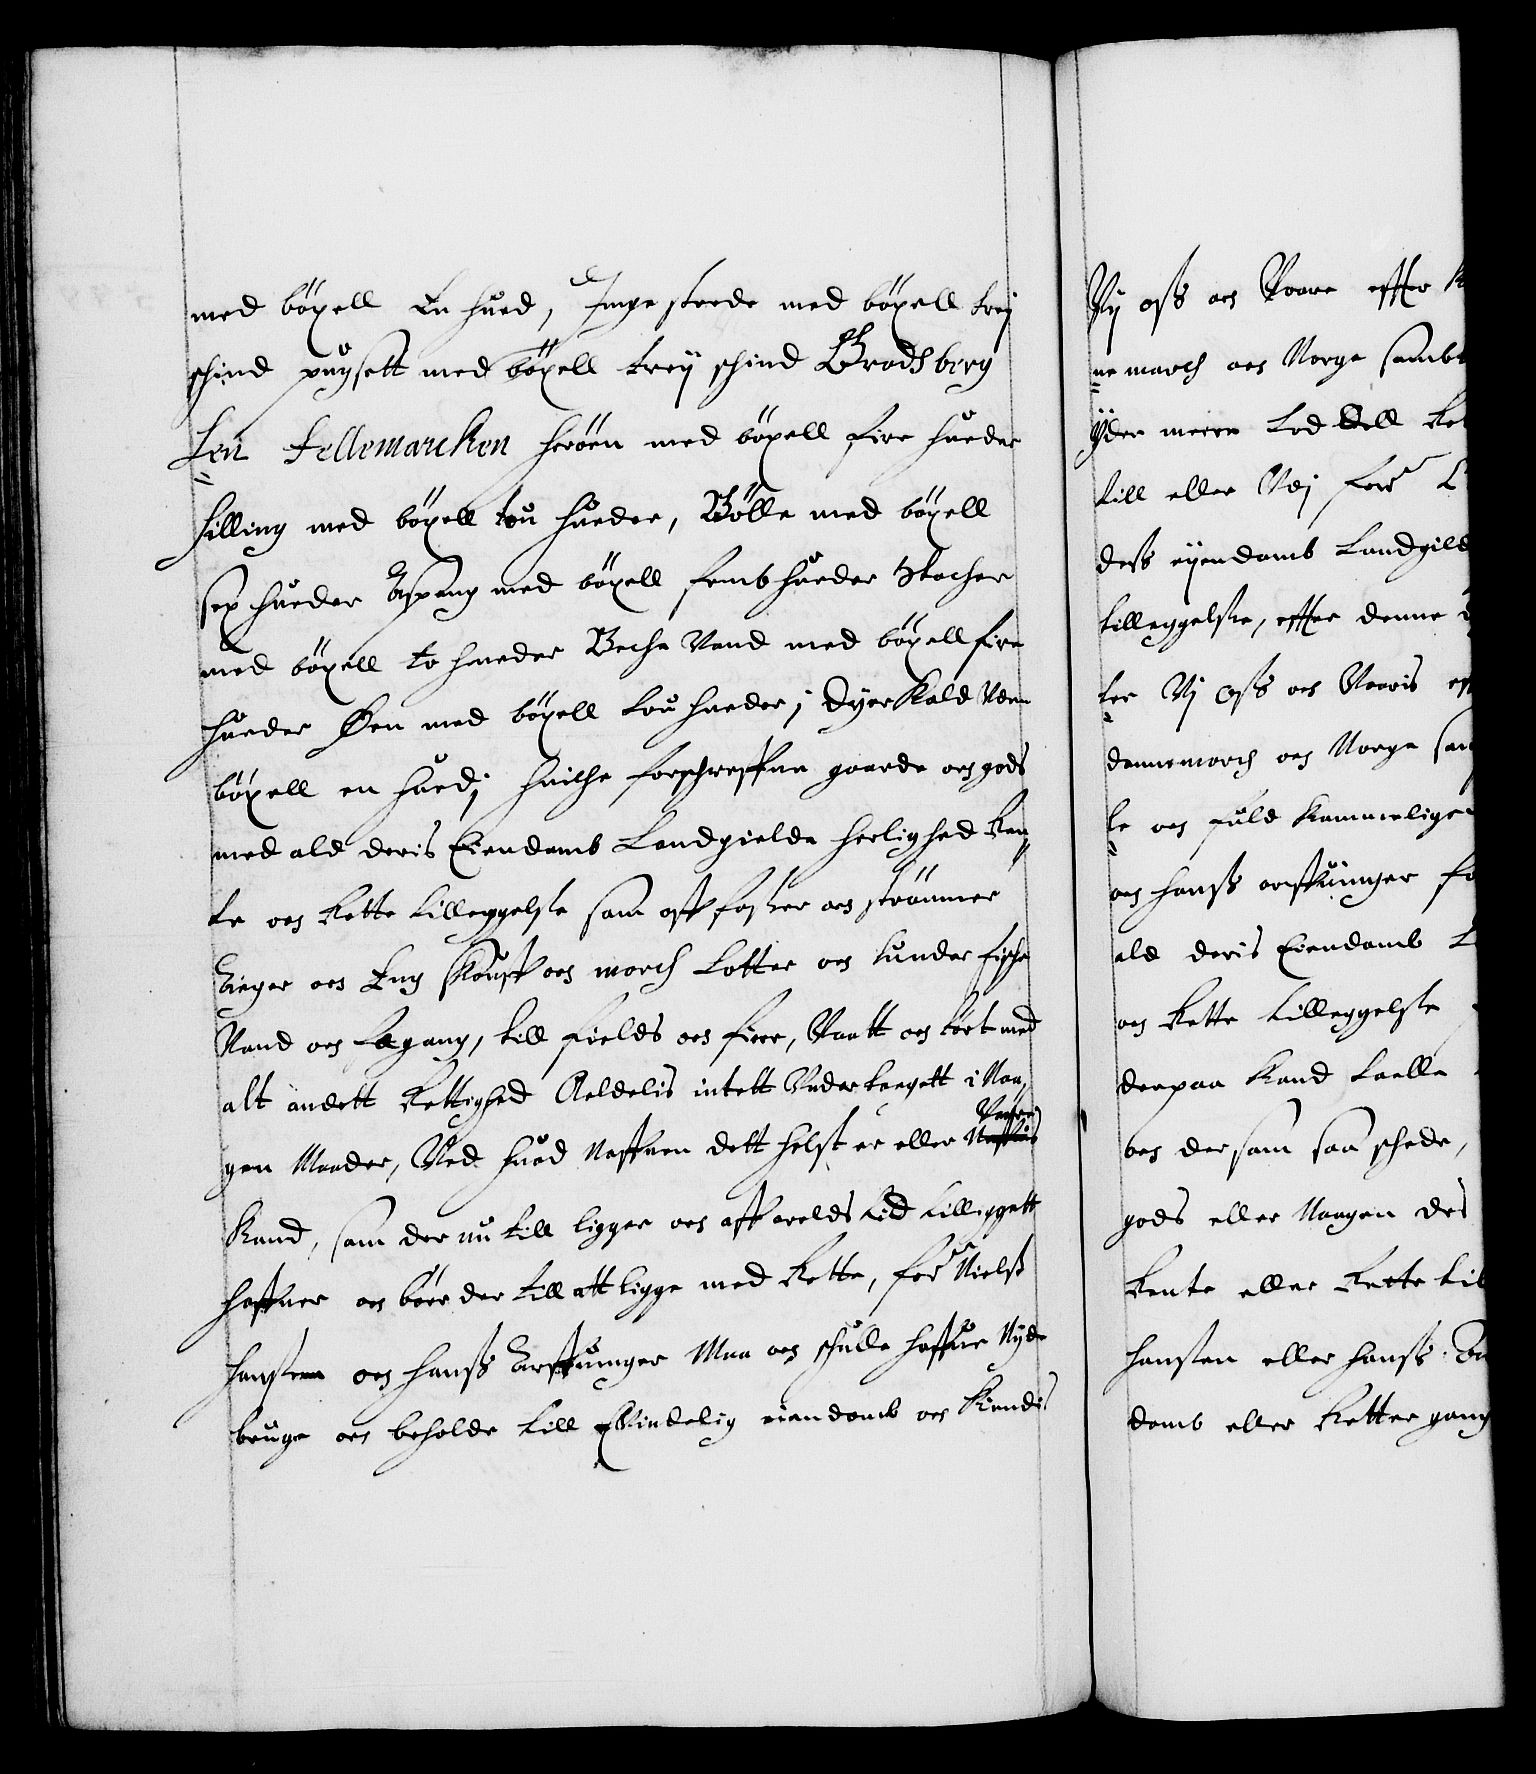 med böxell En hued, Inge stede med böxell trej
schind pugsett med böxell treij schind Bradsberg
Len Tellemarcken herøen med böxell fire hueder
Hilling med böxell tou hueder, Bölle med böxell
sex hueder Aspang med böxell femb hueder Stocher
med böxell to hueder Beche Vand med böxell fire
hueder Øen med böxell tou hueder; Dyer Kald Uden
böxell en hued; huilche forschreffne gaarde och gods
med ald deris Eiendomb Landgielde herlighed Ren¬
te och Rette tilleggelse som aff fosser och strömmer
Ager och Eng Skouff och march Lotter och lunder fische
Vand och Legang, till fields och fiere, Vaatt och tört med
alt andett Rettighed Aeldelis intett Undertagett i Naa¬
gen Maader, Ved hued Naffnen dett helst er eller Være
Kand, som der nu till ligger och aff Arelds tid tilligett
haffuer och bör der till att ligge med Rette, for^ne Nielss
hanssen och hanss Arffuinger Maa och schulle haffue Nyde
bruge och beholde till Evindelig eiendomb och Kiendis
Vij oss och Vaare effter K
nemarch och Norge sambt
ijder meere Lod Dell Ret
till eller Udj for^ne
dess eijendomb Landgild
tilleggelse, effter denne
ter Vj Oss och Vaaris eff
dannemarch och Norge sam
le och fuld Kommelige
och hanss arffuinger fo
ald deris Eiendomb L
och Rette tilleggelse
derpaa Kand taelle
och dersom saa schede,
gods eller Naagen des
Rente eller Rette til
hanssen eller hanss
domb eller Rettergang